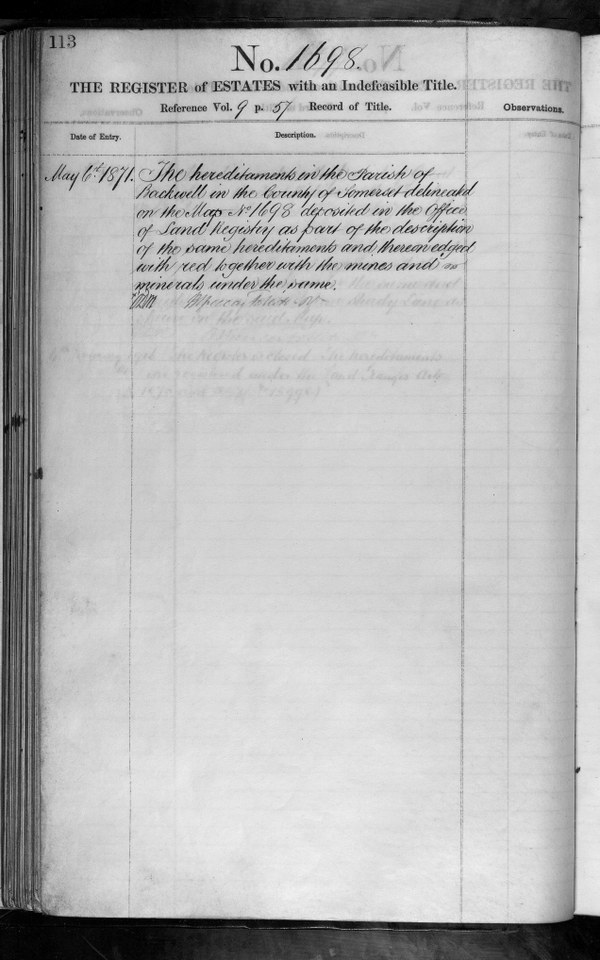 113
No. 1698.
THE REGISTER of ESTATES with an Indefeasible Title.
Reference Vol. 9 p. 57 Record of Title.
Observations.
Date of Entry.
Description.
May 6th 1871.
The hereditaments in the Parish of
Backwell in the County of Somerset delineated
on the Map No 1698 deposited in the Office
of Land Registry as part of the description
of the same hereditaments and thereon edged
with red together with the mines and
minerals under the same.